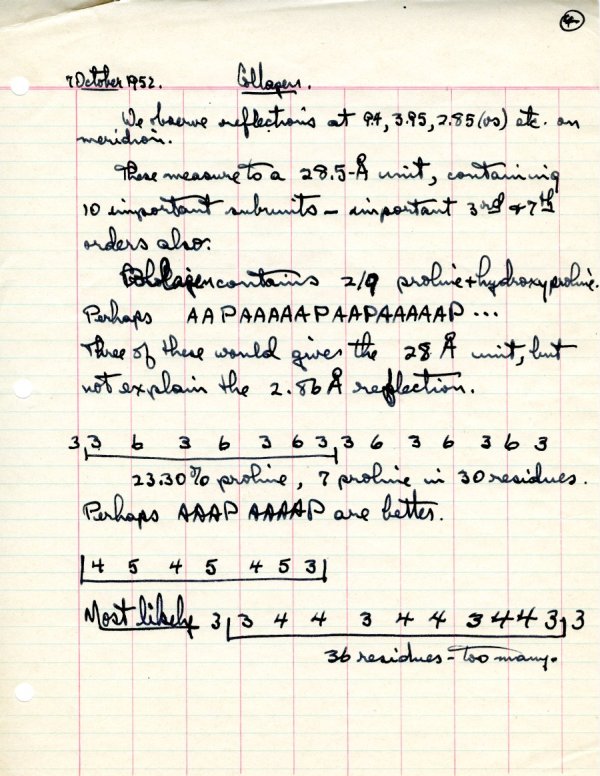 4
7 October 1952. Collagen.
We observe reflections at 9.4, 3.95, 2.85 (vs) etc. on
meridion.
These measure to a 28.5-Å unit, containing
10 important subunits - important 3rd & 7th
orders also.
Collagen contains 2/9 proline + hydroxyproline.
Perhaps AAPAAAAAPAAPAAAAAP ...
Three of these would give the 28 Å unit, but
not explain the 2.86 Å reflection.
3 3 6 3 6 3 6 3 3 6 3 6 3 6 3
23.30% proline, 7 proline in 30 residues.
Perhaps AAAP AAAAP are better.
4 5 4 5 4 5 3
Most likely 3 3 4 4 3 4 4 3 4 4 3 3
36 residues - too many.